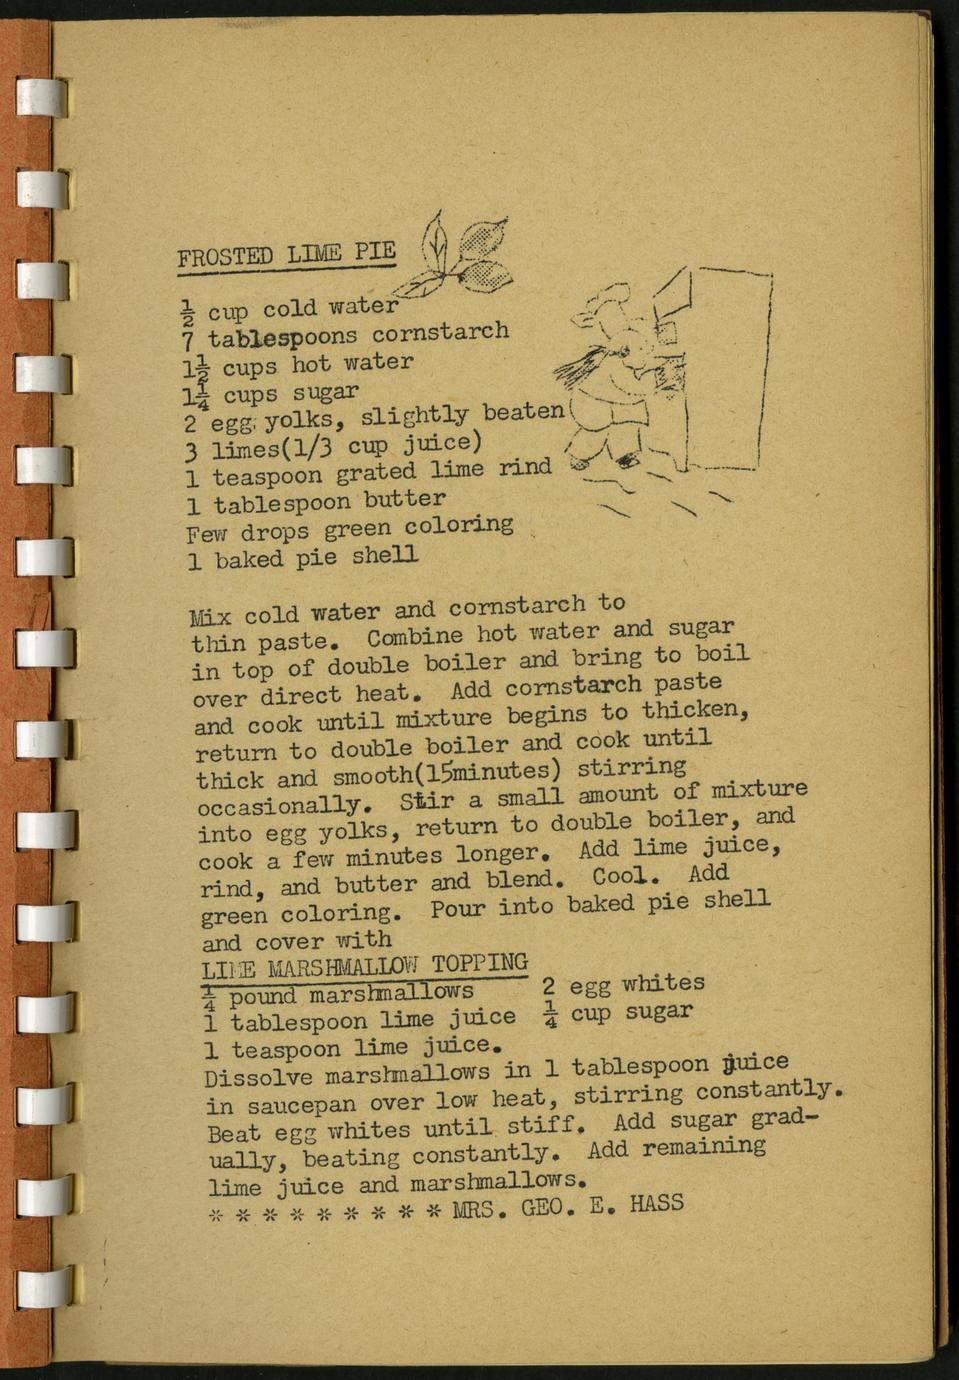 FROSTED LIME PIE
½ cup cold water
7 tablespoons cornstarch
1½ cups hot water
1¼ cups sugar
2 egg yolks, slightly beaten
3 limes(1/3 cup juice)
1 teaspoon grated lime rind
1 tablespoon butter
Few drops green coloring
1 baked pie shell
Mix cold water and cornstarch to
thin paste. Combine hot water and sugar
in top of double boiler and bring to boil
over direct heat. Add cornstarch paste
and cook until mixture begins to thicken,
return to double boiler and cook until
thick and smooth(15minutes) stirring
occasionally. Stir a small amount of mixture
into egg yolks, return to double boiler, and
cook a few minutes longer. Add lime juice,
rind, and butter and blend. Cool. Add
green coloring. Pour into baked pie shell
and cover with
LIME MARSHMALLOW TOPPING
¼ pound marshmallows 2 egg whites
1 tablespoon lime juice ¼ cup sugar
1 teaspoon lime juice.
Dissolve marshmallows in 1 tablespoon juice
in saucepan over low heat, stirring constantly.
Beat egg whites until stiff. Add sugar grad-
ually, beating constantly. Add remaining
lime juice and marshmallows.
* * * * * * * * * MRS. GEO. E. HASS